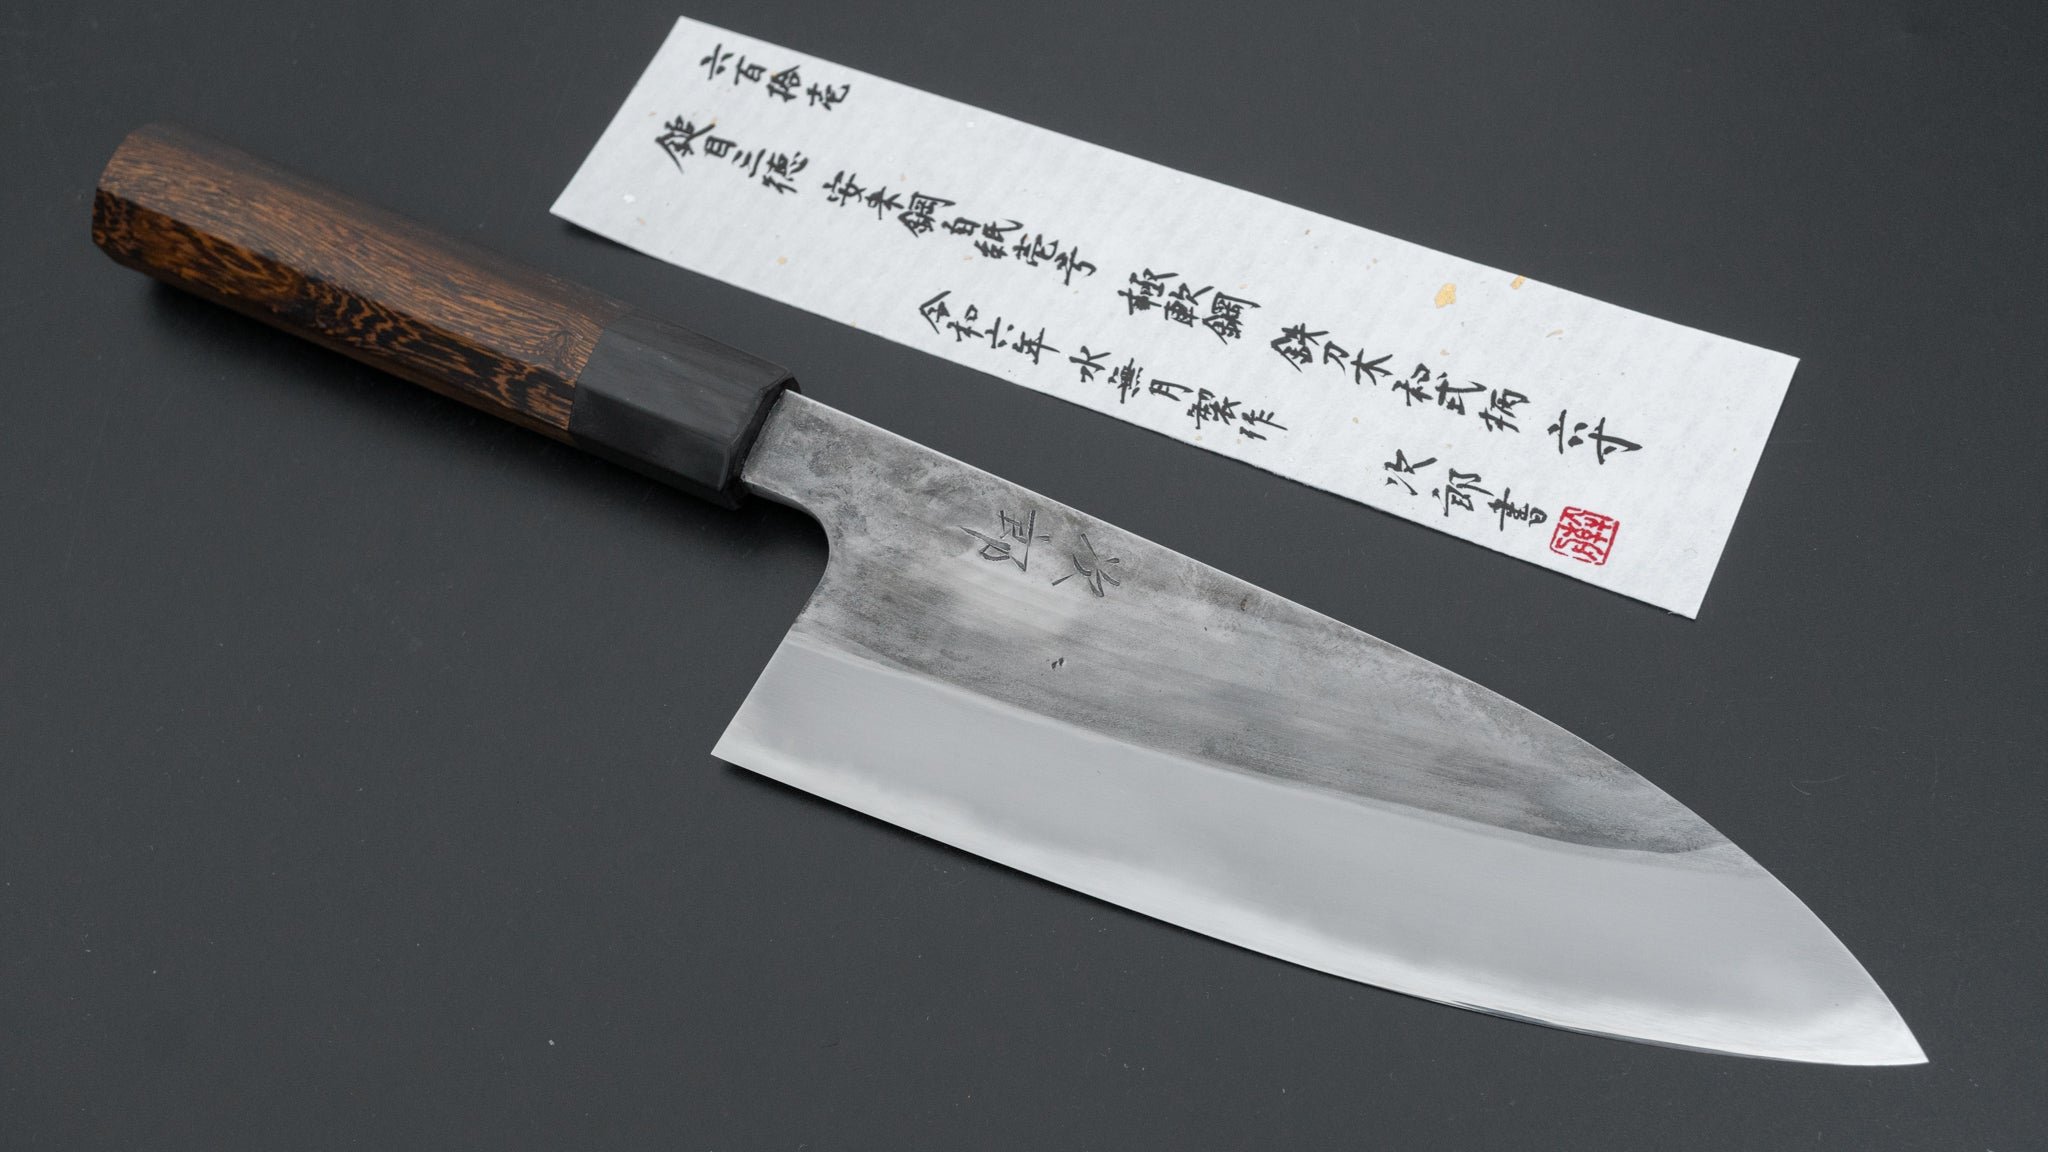 六百拾壱
鎚目三徳 安来鋼白紙壱号 極軟鋼 鉄刀木 和式柄 六寸
令和六年 水無月 製作
次郎書
次郎